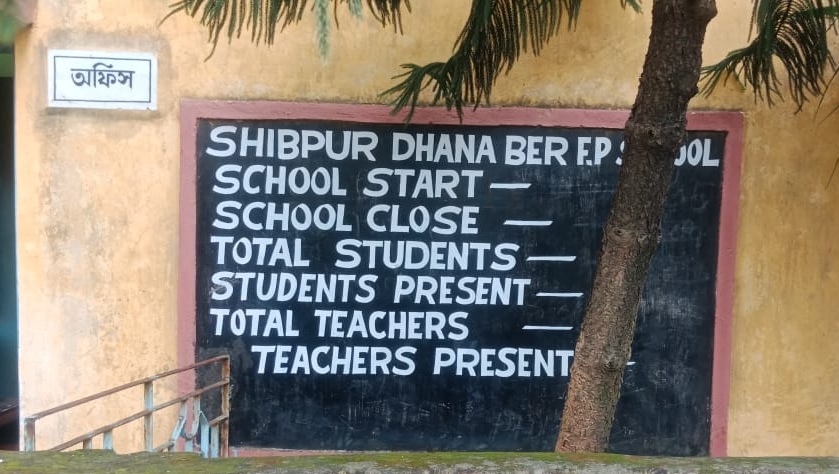 অফিস
SHIBPUR DHANA BER F.P
SCHOOL START —
SCHOOL CLOSE —
TOTAL STUDENTS —
STUDENTS PRESENT —
TOTAL TEACHERS —
TEACHERS PRESENT —